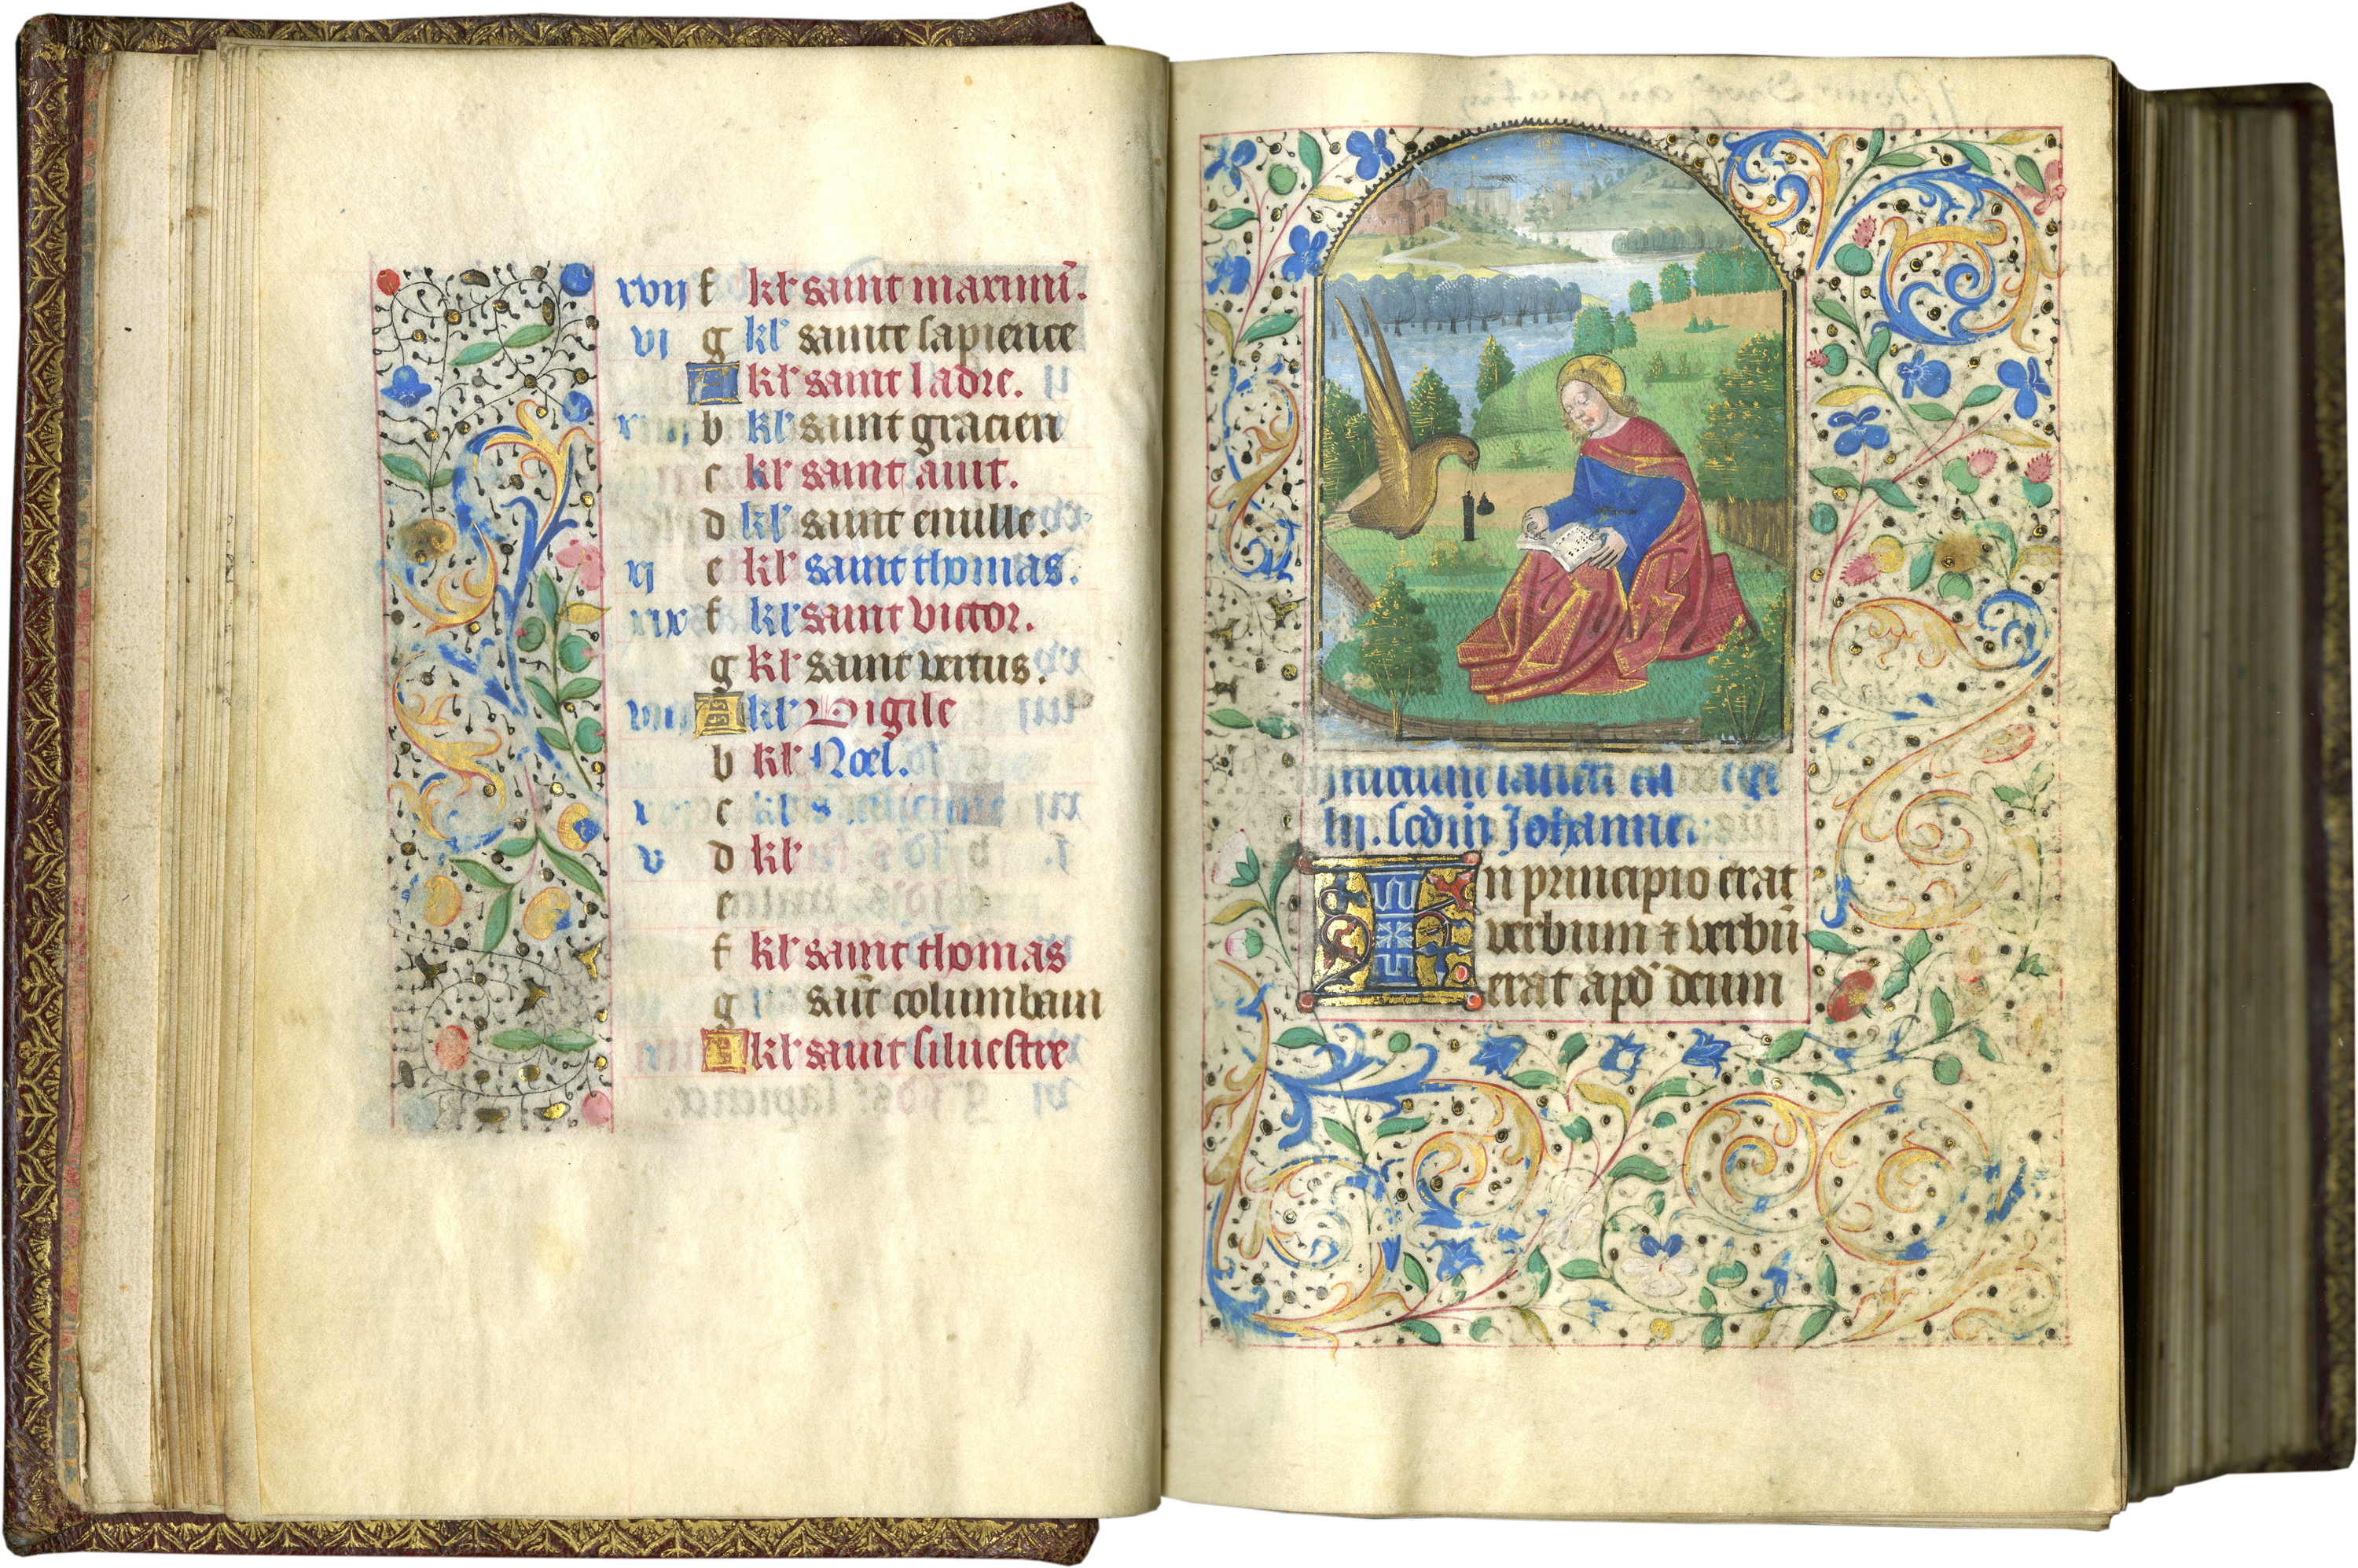 xvij f kl' saint maximi.
vi g kl' sainte sapience
A kl' saint ladre.
b kl' saint gracien
c kl' saint avit.
d kl' saint emille.
xj e kl' saint thomas.
xix f kl' saint victor.
g kl' saint vertus.
viij A kl' Vigile
b kl' Noel.
c kl' s.
v d kl'
e
f kl' saint thomas
g saīt columbain
A kl' saint silvestre
Inicium sancti
lij. scdm Johanne.
In principio erat
verbum & verbū
erat apd' deum